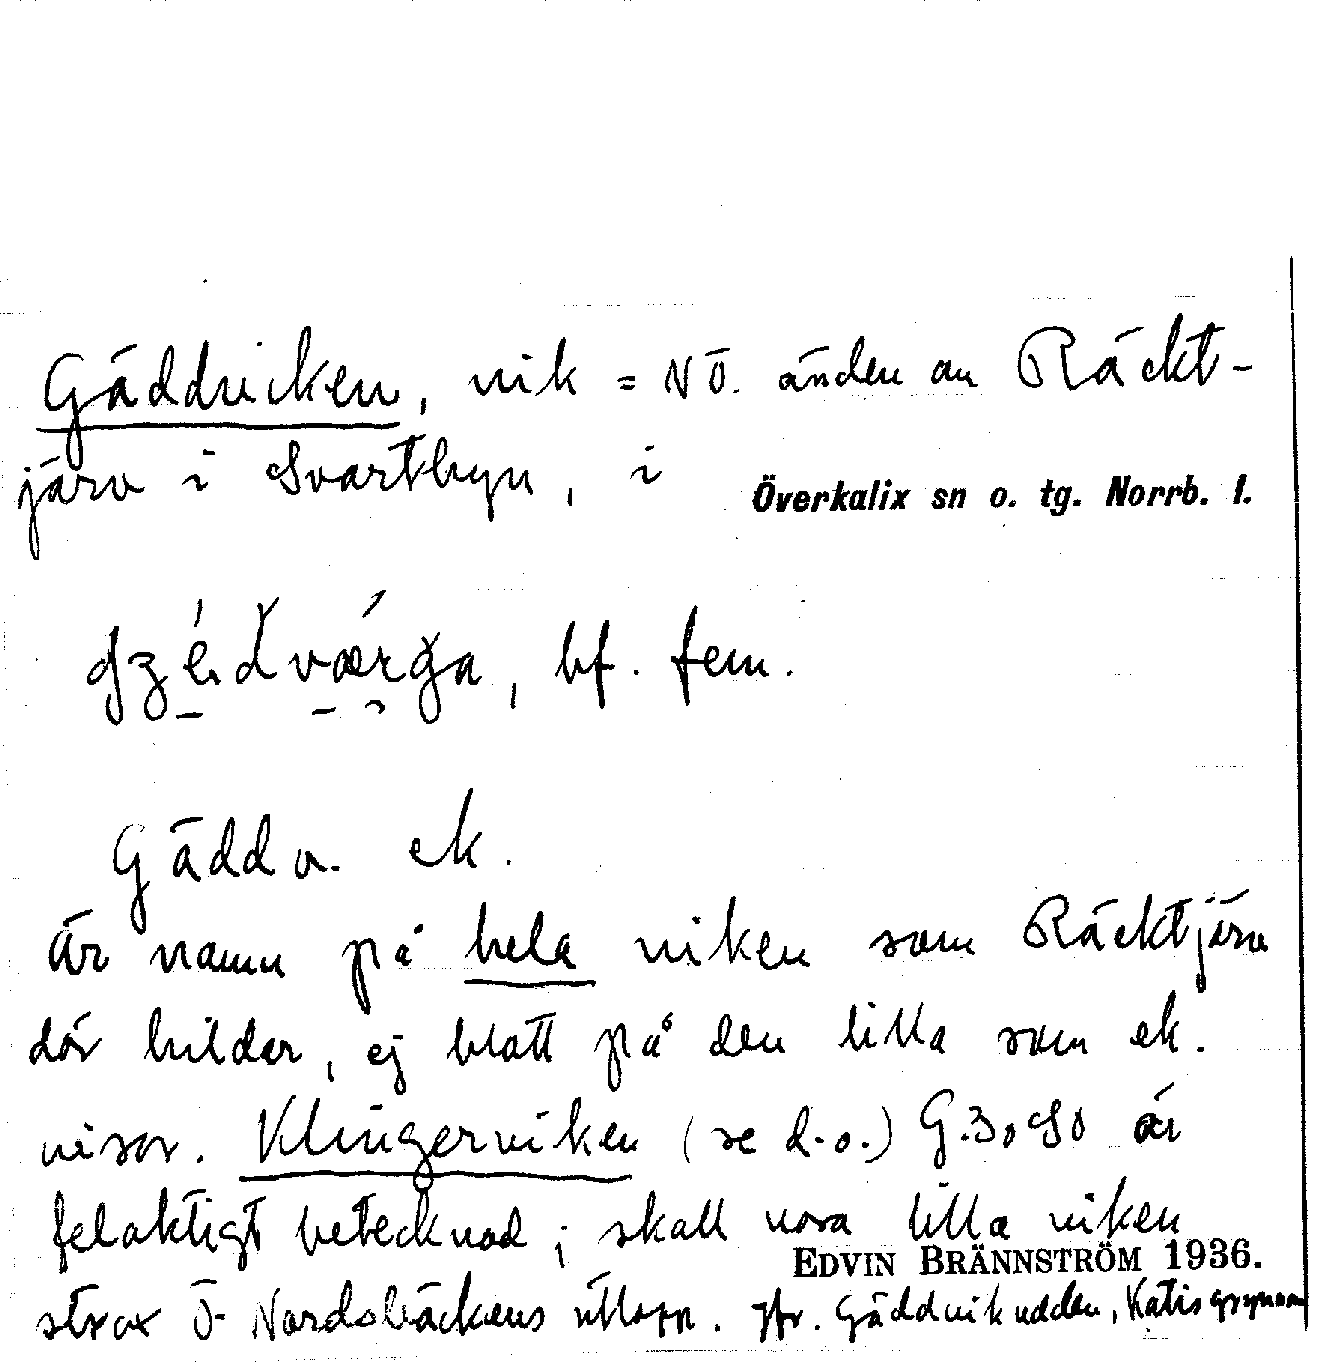 Gäddviken, vik = NÖ. änden av Räckt-
järv i Svartbyn, i Överkalix sn o. tg. Norrb. l.
bf. fem.
Gädda. ek.
Är namn på hela viken som Räcktjärv
där bildar, ej blott på den lilla som ek.
visar. Klingerviken (se d.o.) G.3, SO är
felaktigt betecknad; skall vara lilla viken
EDVIN BRÄNNSTRÖM 1936.
strax Ö Nordsbäckens utlopp. Jfr. Gäddvikudden,